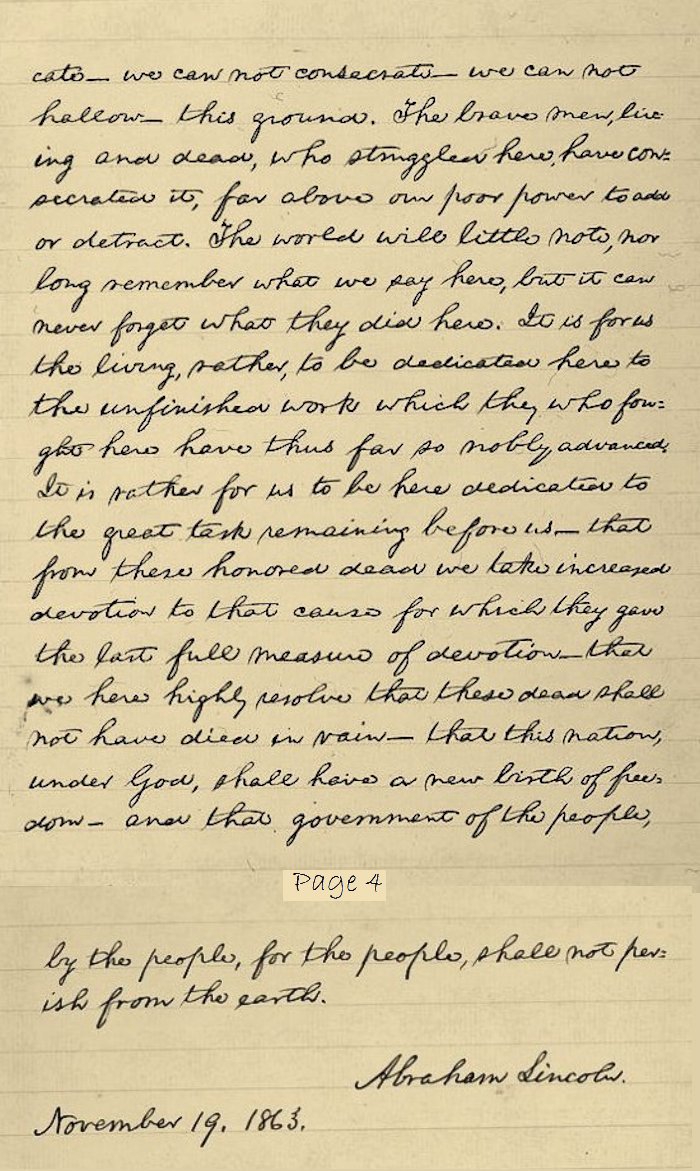 cate— we can not consecrate— we can not
hallow— this ground. The brave men, liv-
ing and dead, who struggled here, have con-
secrated it, far above our poor power to add
or detract. The world will little note, nor
long remember what we say here, but it can
never forget what they did here. It is for us
the living, rather, to be dedicated here to
the unfinished work which they who fou-
ght here have thus far so nobly advanced.
It is rather for us to be here dedicated to
the great task remaining before us— that
from these honored dead we take increased
devotion to that cause for which they gave
the last full measure of devotion— that
we here highly resolve that these dead shall
not have died in vain— that this nation,
under God, shall have a new birth of free-
dom— and that government of the people,
Page 4
by the people, for the people, shall not per-
ish from the earth.
Abraham Lincoln.
November 19, 1863.